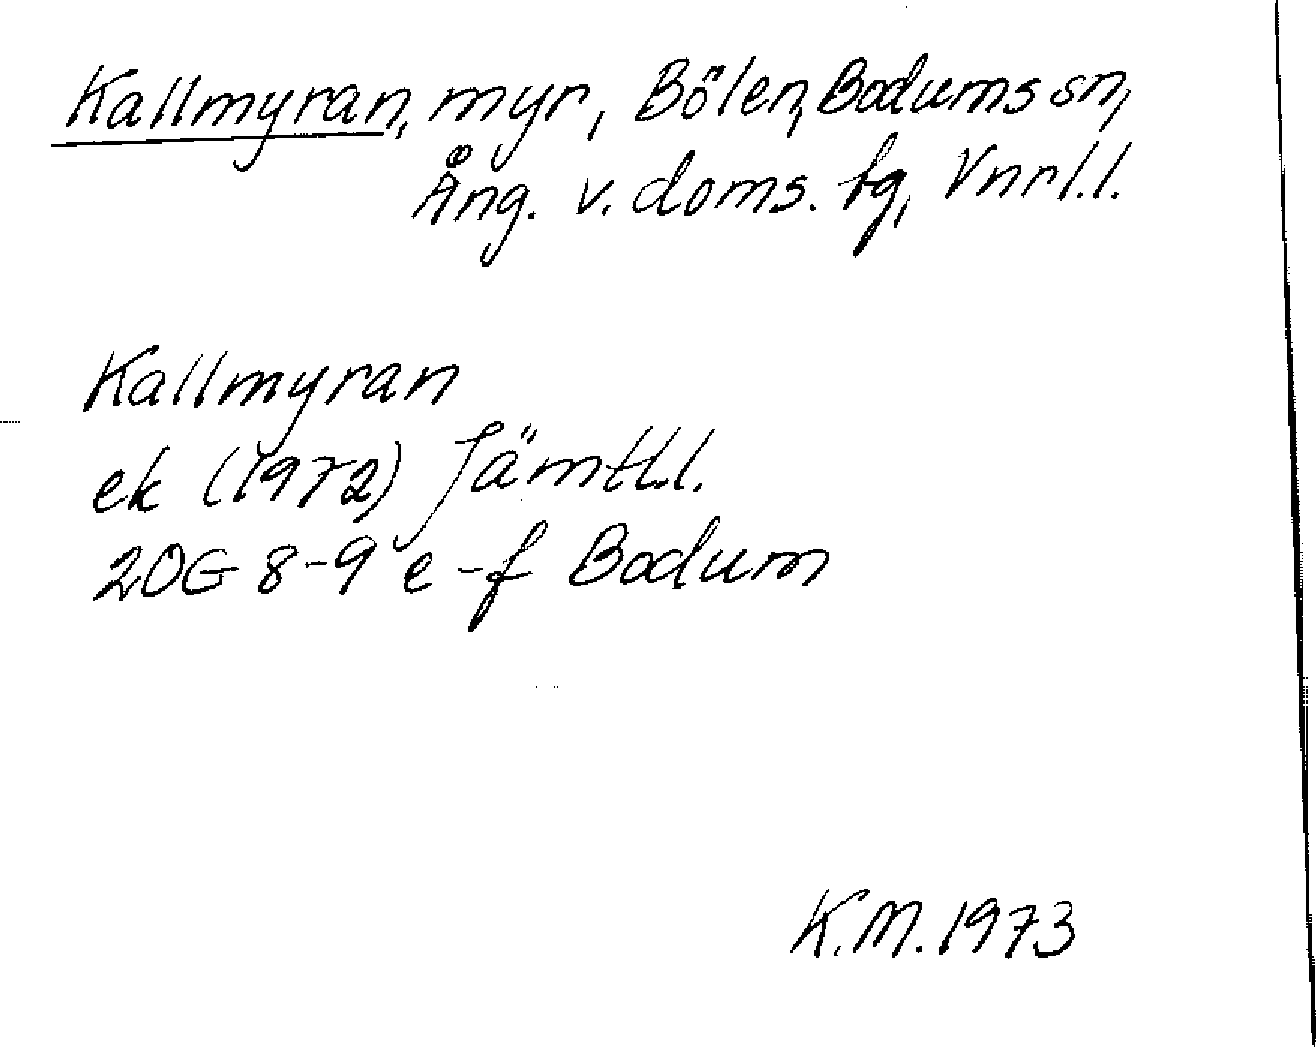 Kallmyran, myr, Bölen, Bodums sn,
Ång. v. doms. fg, Vnrl.l.
Kallmyran
ek (1972) Jämtl.l.
20G 8-9 e-f Bodum
K.M. 1973